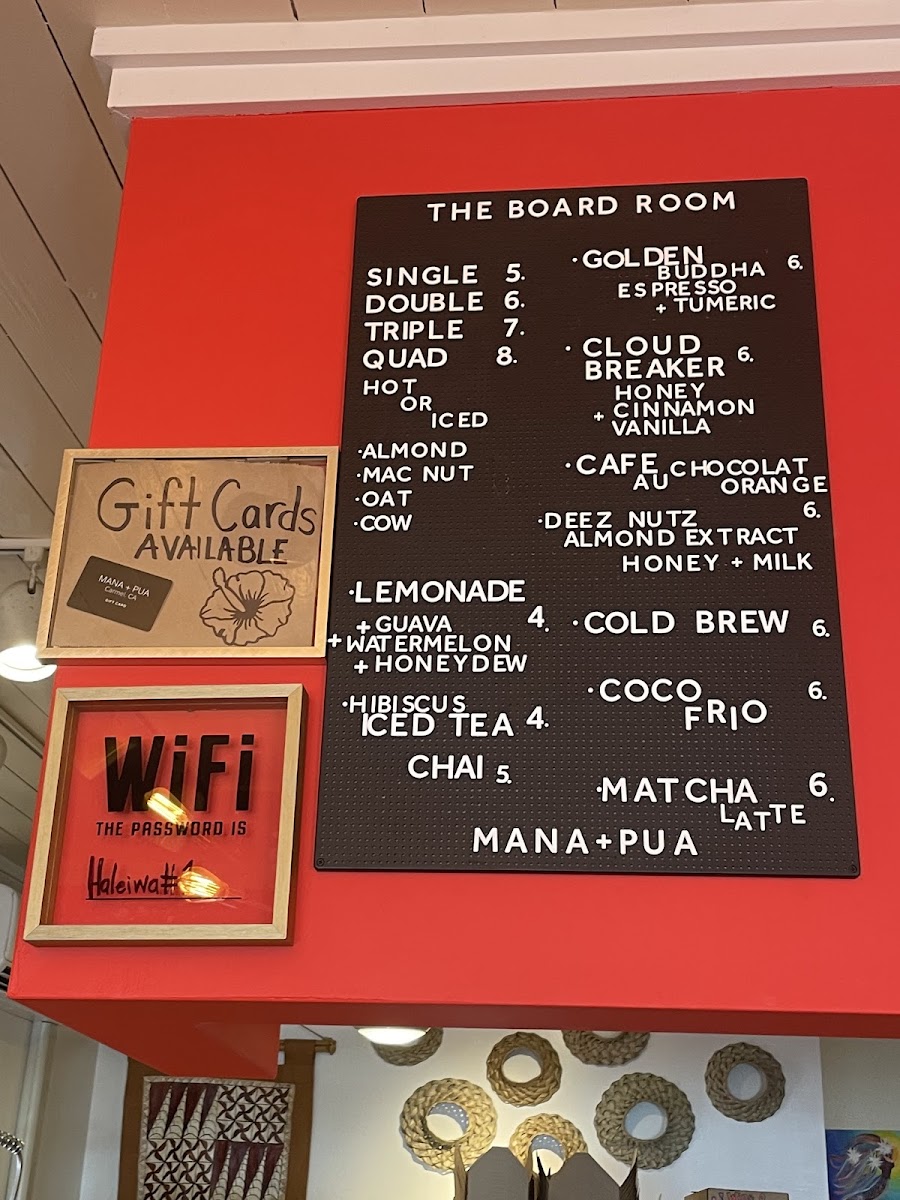 THE BOARD ROOM
SINGLE 5.
DOUBLE 6.
TRIPLE 7.
QUAD 8.
HOT
OR
ICED
·ALMOND
·MAC NUT
·OAT
·COW
·LEMONADE
+ GUAVA 4.
+ WATERMELON
+ HONEYDEW
·HIBISCUS
ICED TEA 4.
CHAI 5.
·GOLDEN
BUDDHA 6.
ESPRESSO
+ TUMERIC
·CLOUD
BREAKER 6.
HONEY
+ CINNAMON
VANILLA
·CAFE CHOCOLAT
AU ORANGE
6.
·DEEZ NUTZ
ALMOND EXTRACT
HONEY + MILK
·COLD BREW 6.
·COCO 6.
FRIO
·MATCHA 6.
LATTE
MANA+PUA
Gift Cards
AVAILABLE
MANA + PUA
Carmel, CA
GIFT CARD
WiFi
THE PASSWORD IS
Haleiwa#